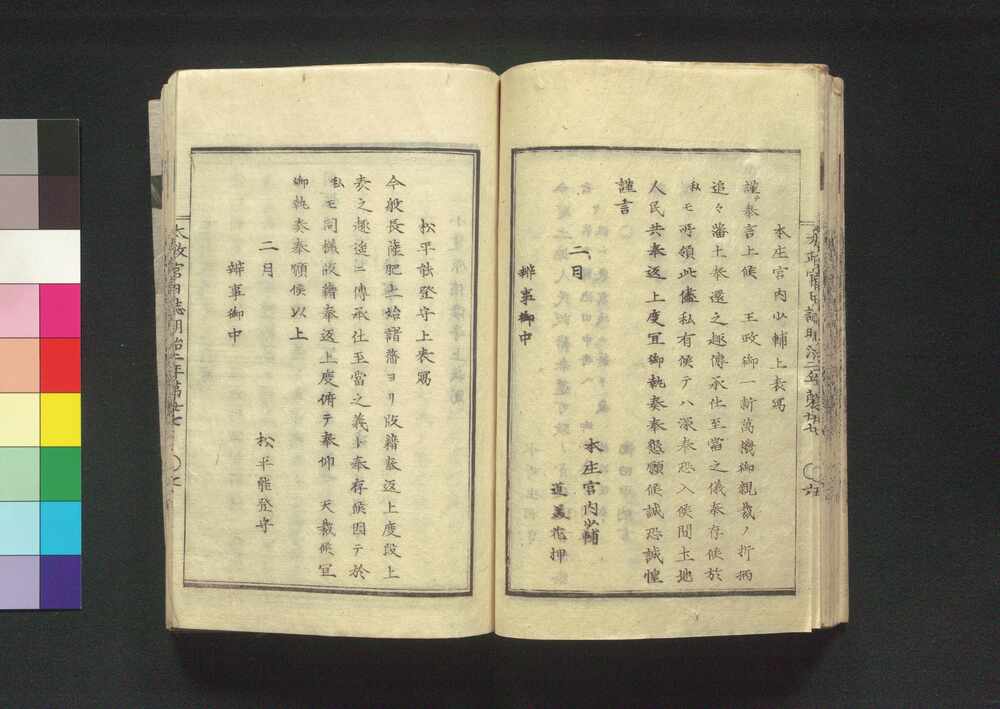 本庄宮内少輔上表寫
謹テ奉言上候 王政御一新萬機御親裁ノ折柄
追々藩土奉還之趣傳承仕至當之儀奉存候於
私モ所領此儘私有候テハ深奉恐入候間土地
人民共奉返上度宜御執奏奉懇願候誠恐誠惶
謹言
二月
本庄宮内少輔
道美花押
辨事御中
太政官日誌明治二年第廿七
六
松平能登守上表寫
今般長薩肥土始諸藩ヨリ版籍奉返上度段上
表之趣追々傳承仕至當之義ト奉存候因テ於
私モ同樣版籍奉返上度俯テ奉仰 天裁候宜
御執奏奉願候以上
二月
松平能登守
辨事御中
太政官日誌明治二年第廿七
七